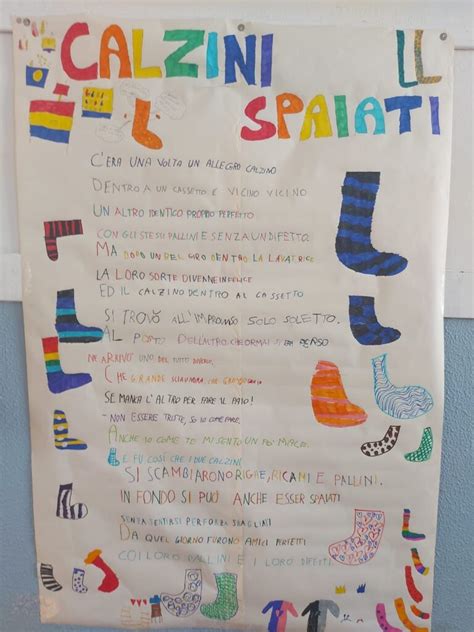 CALZINI
SPAIATI
C'ERA UNA VOLTA UN ALLEGRO CALZINO
DENTRO A UN CASSETTO E VICINO VICINO
UN ALTRO IDENTICO PROPRIO PERFETTO
CON GLI STESSI PALLINI E SENZA UN DIFETTO.
MA DOPO UN BEL GIRO DENTRO LA LAVATRICE
LA LORO SORTE DIVENNE INFELICE
ED IL CALZINO DENTRO AL CASSETTO
SI TROVÒ ALL'IMPROVVISO SOLO SOLETTO.
AL POSTO DELL'ALTRO CHE ORMAI SI ERA PERSO
NE ARRIVÒ UNO DEL TUTTO DIVERSO.
CHE GRANDE SCIAGURA CHE GRANDE
SE MANCA L'ALTRO PER FARE IL PAIO!
- NON ESSERE TRISTE, SO IO COME FARE.
ANCHE IO COME TE MI SENTO UN PO'
E FU COSÌ CHE I DUE CALZINI
SI SCAMBIARONO RIGHE, RICAMI E PALLINI.
IN FONDO SI PUÒ ANCHE ESSER SPAIATI
SENZA SENTIRSI PER FORZA SBAGLIATI
DA QUEL GIORNO FURONO AMICI PERFETTI
COI LORO PALLINI E I LORO DIFETTI